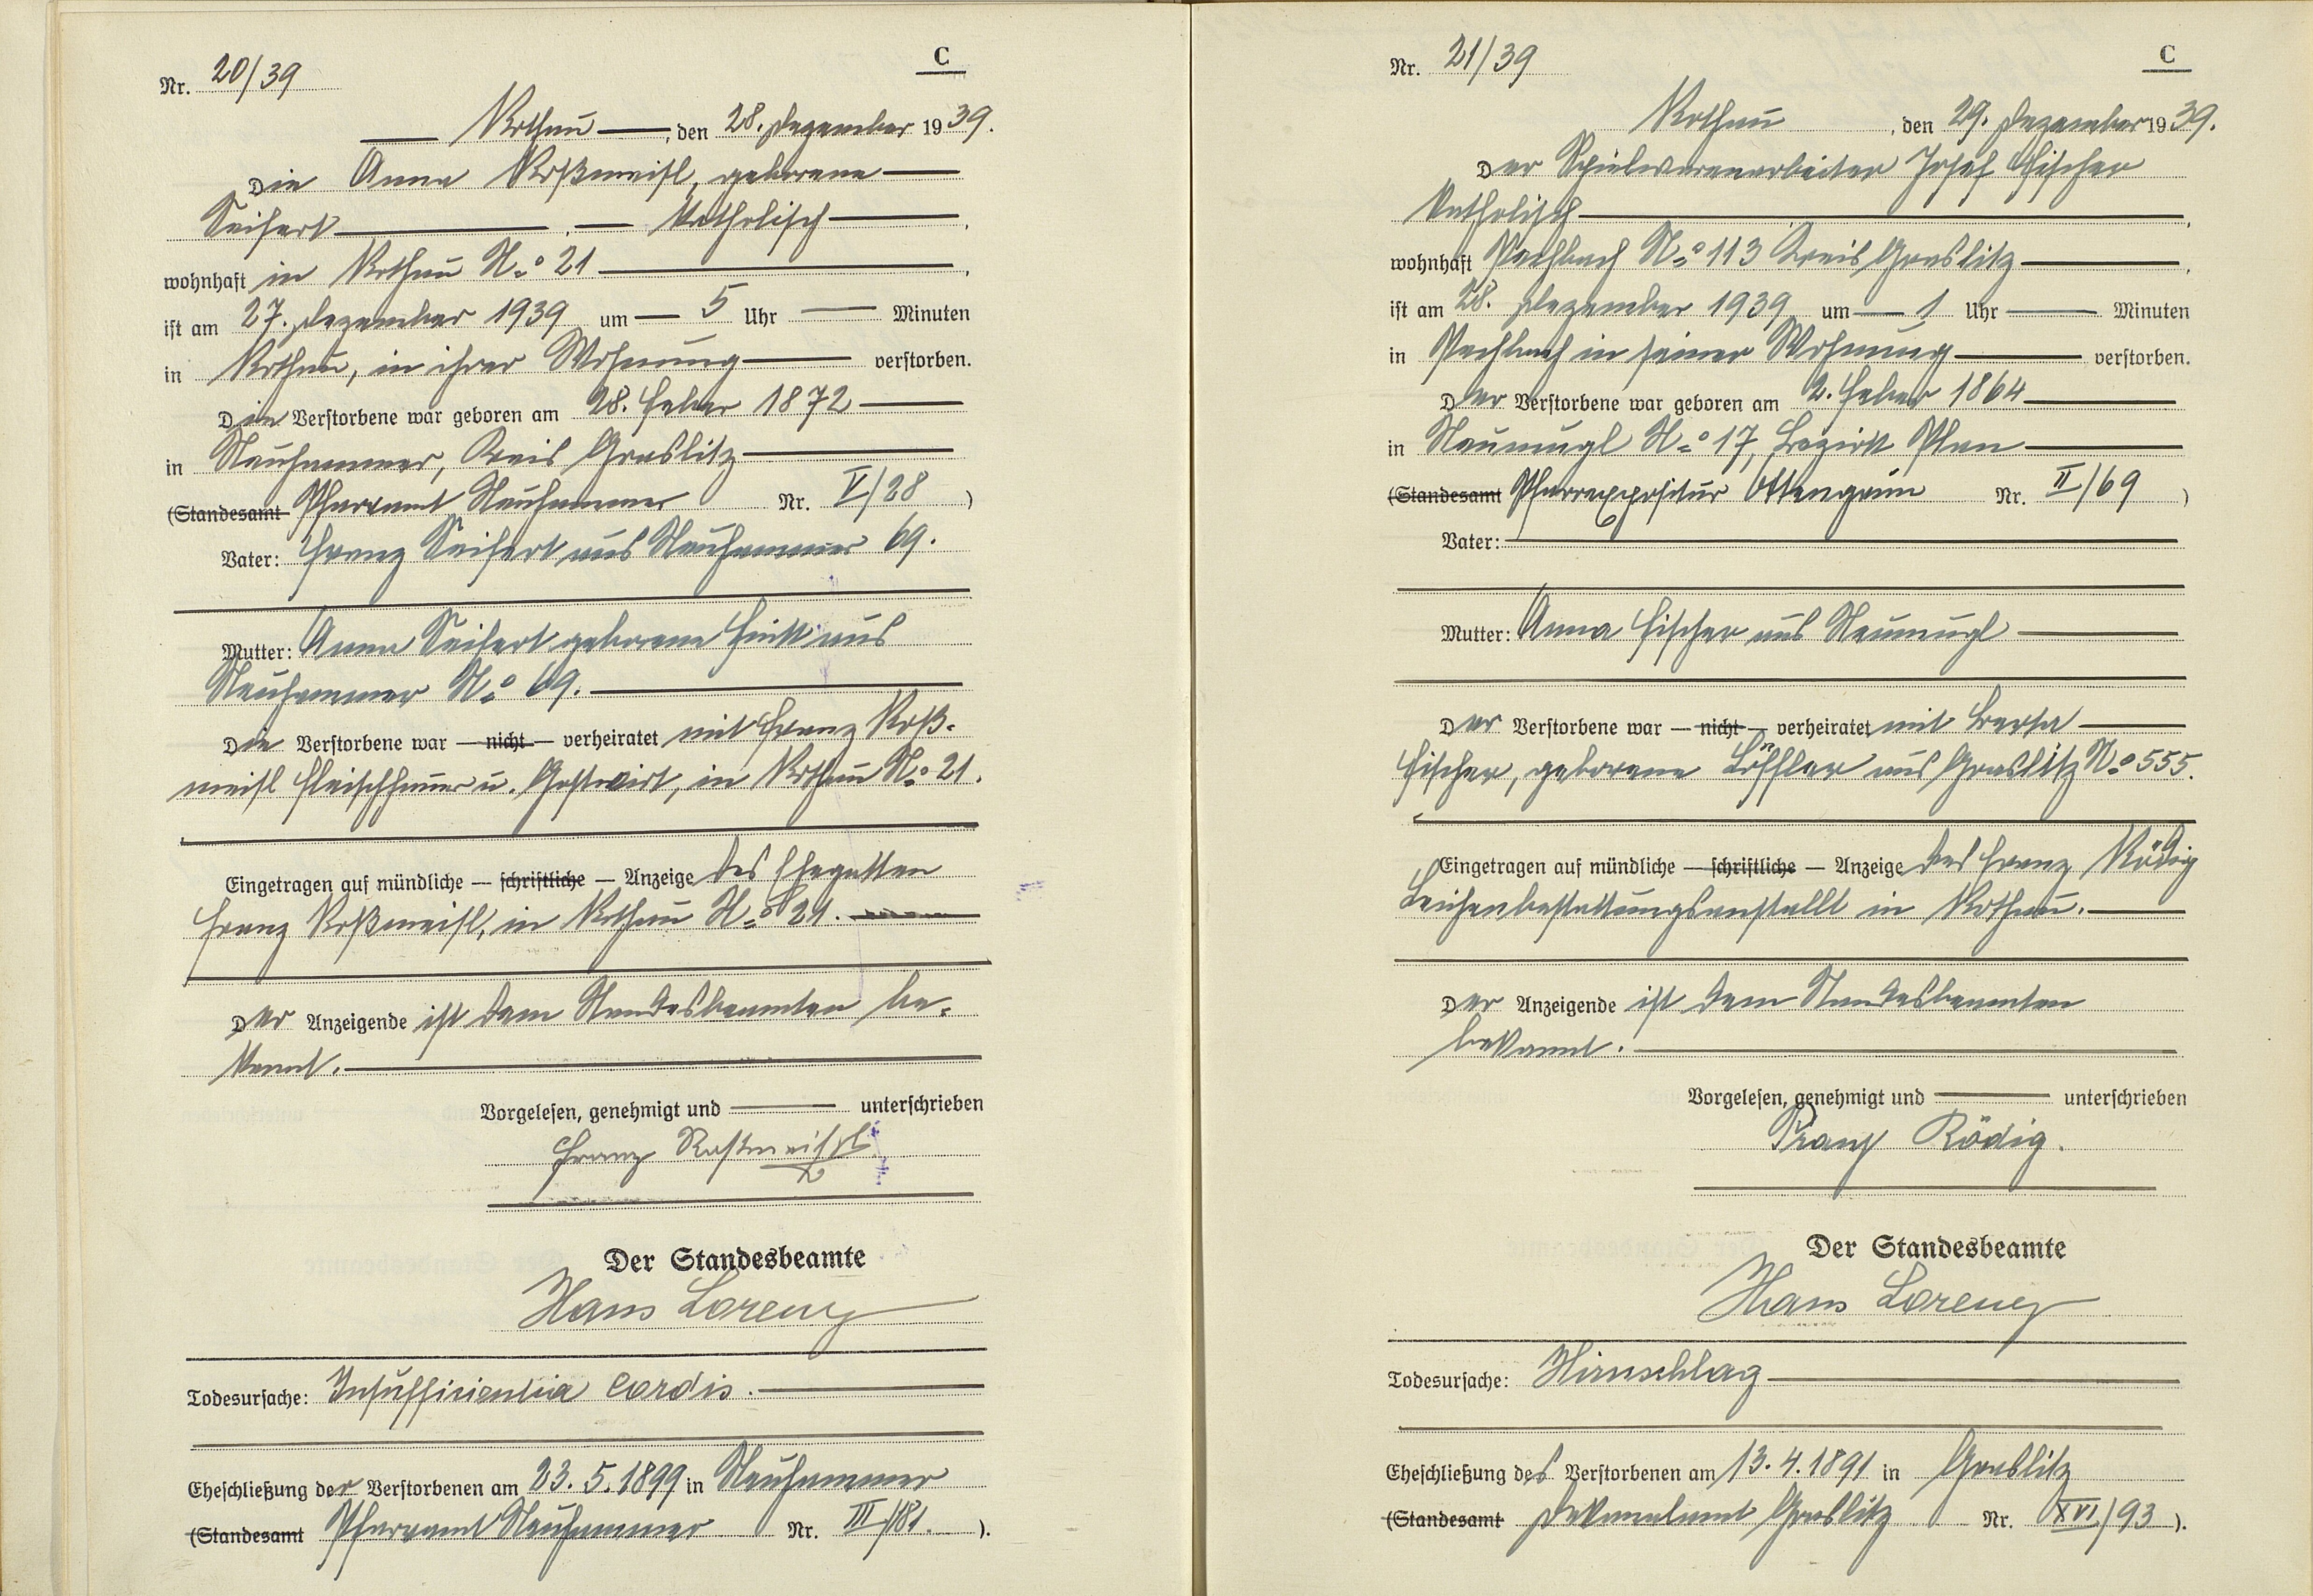 C
Nr. 20/39
Rothau, den 28. Dezember 1939.
Die Anna Roßmeisl, geborene
Seifert, katholisch,
wohnhaft in Rothau No 21,
ist am 27. Dezember 1939 um 5 Uhr Minuten
in Rothau, in ihrer Wohnung verstorben.
Die Verstorbene war geboren am 28. Feber 1872
in Neuhammer, Kreis Graslitz
(Standesamt Pfarramt Neuhammer Nr. V/28)
Vater: Franz Seifert aus Neuhammer 69.
Mutter: Anna Seifert geborene aus
Neuhammer No 69.
Die Verstorbene war — nicht — verheiratet mit Franz Roß-
meisl Fleischhauer u. Gastwirt, in Rothau No 21.
Eingetragen auf mündliche — schriftliche — Anzeige des Ehegatten
Franz Roßmeisl, in Rothau No 21.
Der Anzeigende ist dem Standesbeamten be-
kannt.
Vorgelesen, genehmigt und unterschrieben
Franz Roßmeisl
Der Standesbeamte
Hans Lorenz
Todesursache: Insufficientia cordis.
Eheschließung der Verstorbenen am 23.5.1899 in Neuhammer
(Standesamt Pfarramt Neuhammer Nr. III/181.).
C
Nr. 21/39
Rothau, den 29. Dezember 1939.
Der Spielwarenarbeiter Josef Fischer
katholisch,
wohnhaft Pechbach No 113 Kreis Graslitz,
ist am 28. Dezember 1939 um 1 Uhr Minuten
in Pechbach in seiner Wohnung verstorben.
Der Verstorbene war geboren am 2. Feber 1864
in Neumugl No 17, Bezirk Plan
(Standesamt Pfarrexpositur Ottengrün Nr. II/69)
Vater:
Mutter: Anna Fischer aus Neumugl
Der Verstorbene war — nicht — verheiratet mit Berta
Fischer, geborene Löffler aus Graslitz No 555.
Eingetragen auf mündliche — schriftliche — Anzeige des Franz Rödig
Leichenbestattungsanstallt in Rothau.
Der Anzeigende ist dem Standesbeamten
bekannt.
Vorgelesen, genehmigt und unterschrieben
Franz Rödig.
Der Standesbeamte
Hans Lorenz
Todesursache: Hirnschlag
Eheschließung des Verstorbenen am 13.4.1891 in Graslitz
(Standesamt Dekanalamt Graslitz Nr. XVI/93).